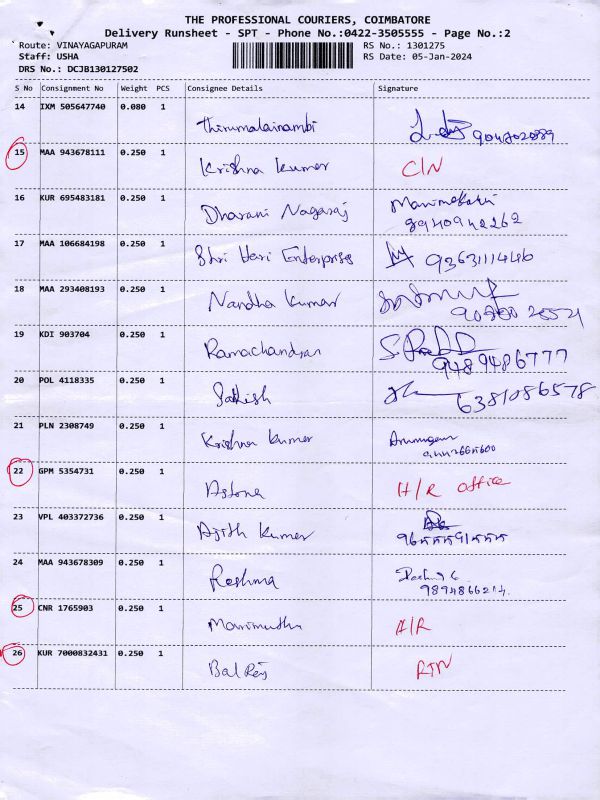 THE PROFESSIONAL COURIERS, COIMBATORE
Delivery Runsheet - SPT - Phone No.:0422-3505555 - Page No.:2
Route: VINAYAGAPURAM RS No.: 1301275
Staff: USHA RS Date: 05-Jan-2024
DRS No.: DCJB130127502
S No Consignment No Weight PCS Consignee Details Signature
14 IXM 505647740 0.080 1
Thirumalainambi
15 MAA 943678111 0.250 1
Krishna Kumar C/N
16 KUR 695483181 0.250 1
Dharani Nagaraj
8940942262
17 MAA 106684198 0.250 1
Shri Hari Enterprises 9363111446
18 MAA 293408193 0.250 1
Nandha Kumar
19 KDI 903704 0.250 1
Ramachandran
9489486777
20 POL 4118335 0.250 1
Sathish 6381086578
21 PLN 2308749 0.250 1
Krishna Kumar Arumugam
22 GPM 5354731 0.250 1
Astona A/R office
23 VPL 403372736 0.250 1
Ajith Kumar
24 MAA 943678309 0.250 1
Reshma
9894866214
25 CNR 1765903 0.250 1
Marimuthu A/R
26 KUR 7000832431 0.250 1
Bal Raj RTN